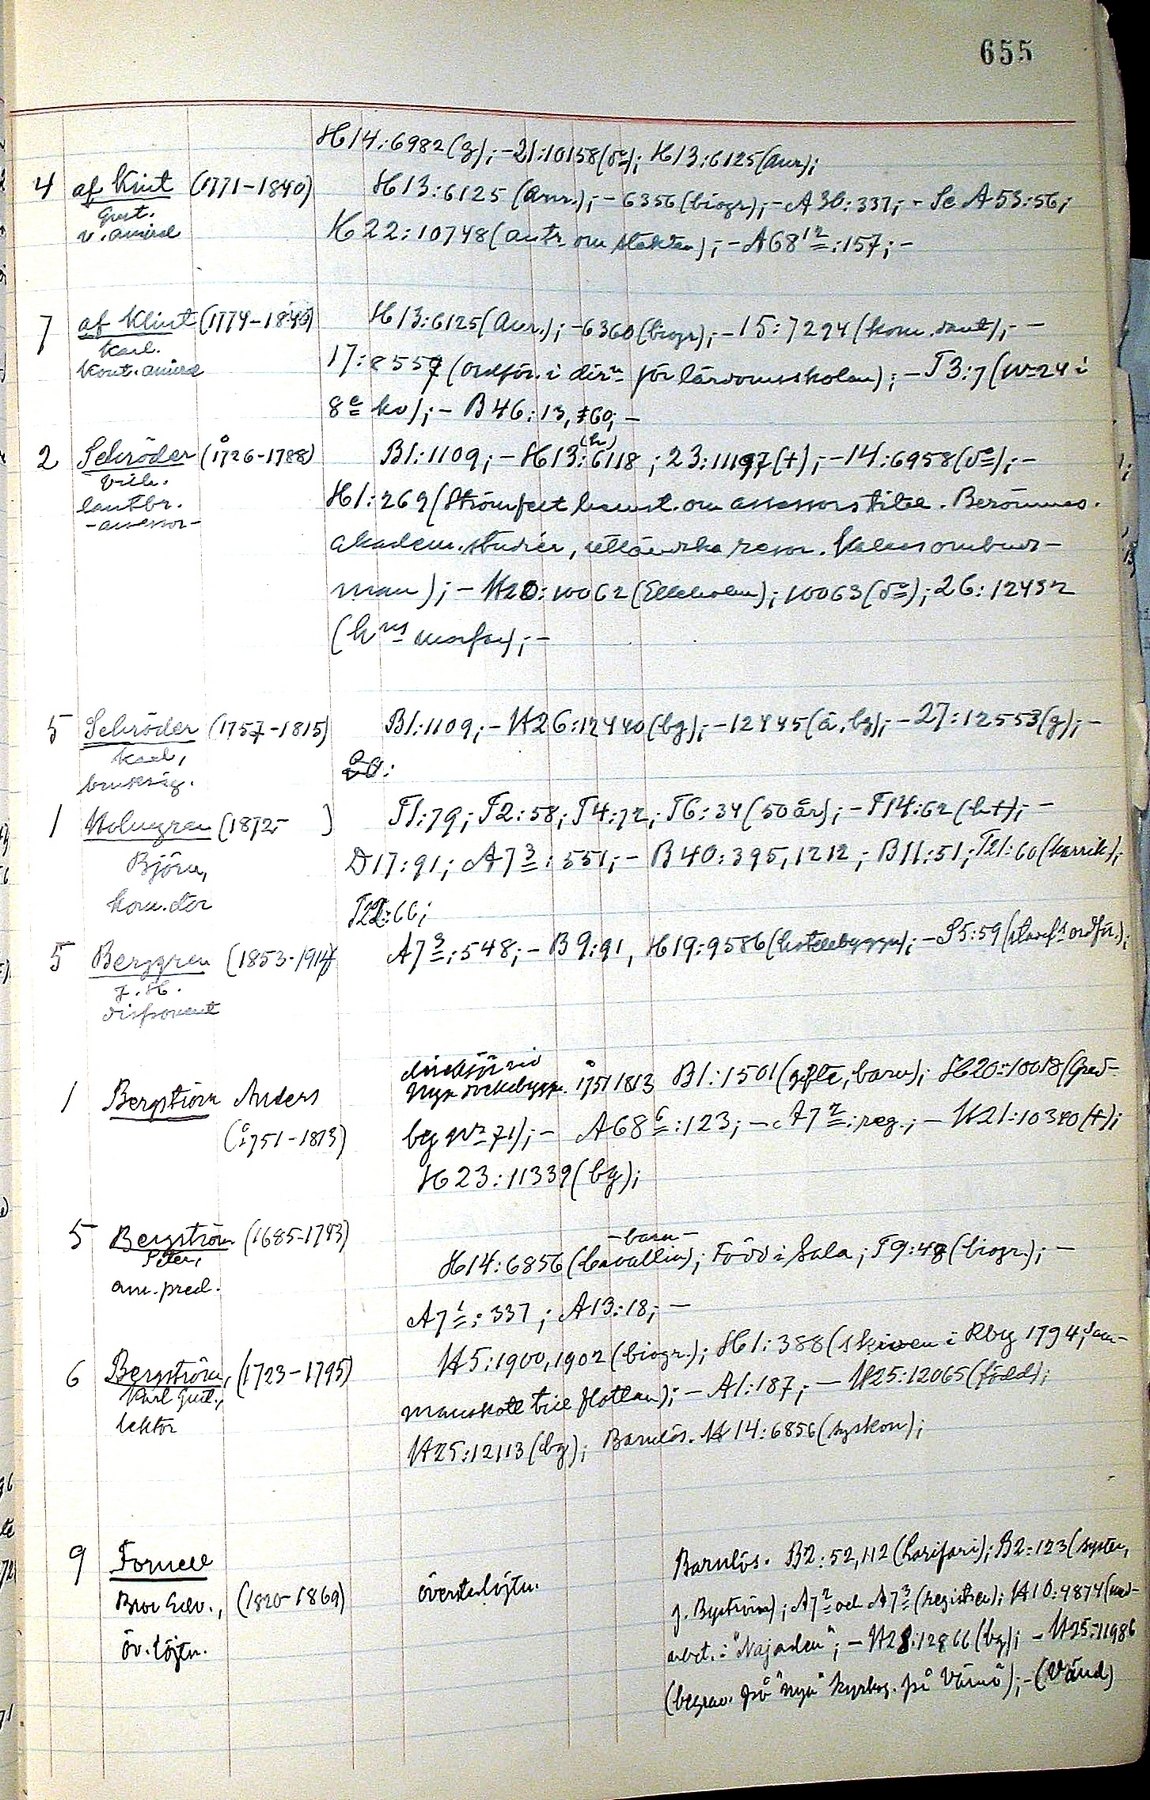 655
H14:6982(g);-21:10158(do); H13:6125(anr);
4 af Klint (1771-1840) H13:6125 (anr.);-6356(biogr);-A30:337;- Se A53:56;
Gust.
v. amiral H22:10748(antr om släkten);-A68:157;-
7 af Klint (1774-1840) H13:6125(Anr.);-6360(biogr);-15:7294(kom. sant);--
Karl.
kont. amiral 17:8557 (ordför. i dirn för lärdomsskolan);-T3:7(No 24 i
8e kv);- B46:13, 60;-
2 Schröder (1726-1788) B1:1109;-H13:6118; 23:11197(+);-14:6958(do);-
(h)
Vilh.
lantbr. H1:269(Strömfelt assessors titel. Berömmes.
-assessor-
akadem. studier, utländska resor. ombuds-
man);-H20:10062(Ekeholm); 10063(do); 26:12432
(hns morfar);-
5 Schröder (1757-1815) B1:1109;-H26:12440(bg);-12445(å, bg);-27:12553(g);-
Karl,
bruksäg.
1 Holmgren (1872- ) T1:79; T2:58; T4:72; T6:34(50 år);-T14:62(h+);-
Björn, D17:91; A73:551;-B40:395,1212; B11:51; T21:60(karrik);
kom.dör T22:66;
5 Berggren (1853-1914) A73:548;-B9:91, H19:9586(hotellbyggn);-S5:59( ordför.);
J. H.
disponent
direktör vid
1 Bergström Anders Nya dockebygg. 1751 1813 B1:1501(gifte, barn); H20:10018(Grev-
(1751-1813) bg No 71);- A686:123;-A72:reg.;-H21:10340(+);
H23:11339(bg);
5 Bergström (1685-1743) H14:6856(Cavallin); Född i Sala; T9:48(biogr.);-
-barn-
Peter,
am. pred. A71:337; A13:18;-
6 Bergström, (1723-1795) H5:1900,1902(biogr.); H1:388(skriven i Rbg 1794,
Karl Gust.,
lektor manskott till flottan);-A1:187;-H25:12065(född);
H25:12113(bg); Barnlös. H14:6856(syskon);
9 Fornell Barnlös. B2:52,112(Harifari); B2:123(syster,
Bror (1820-1869) överstelöjtn. g. Byström); A72 och A73(register); H10:4874(med-
öv. löjtn. arbt. i "Najaden";-H28:12866(bg);-H25:11986
(begrav. på "nya" kyrkog. på Vämö);-(Vänd)